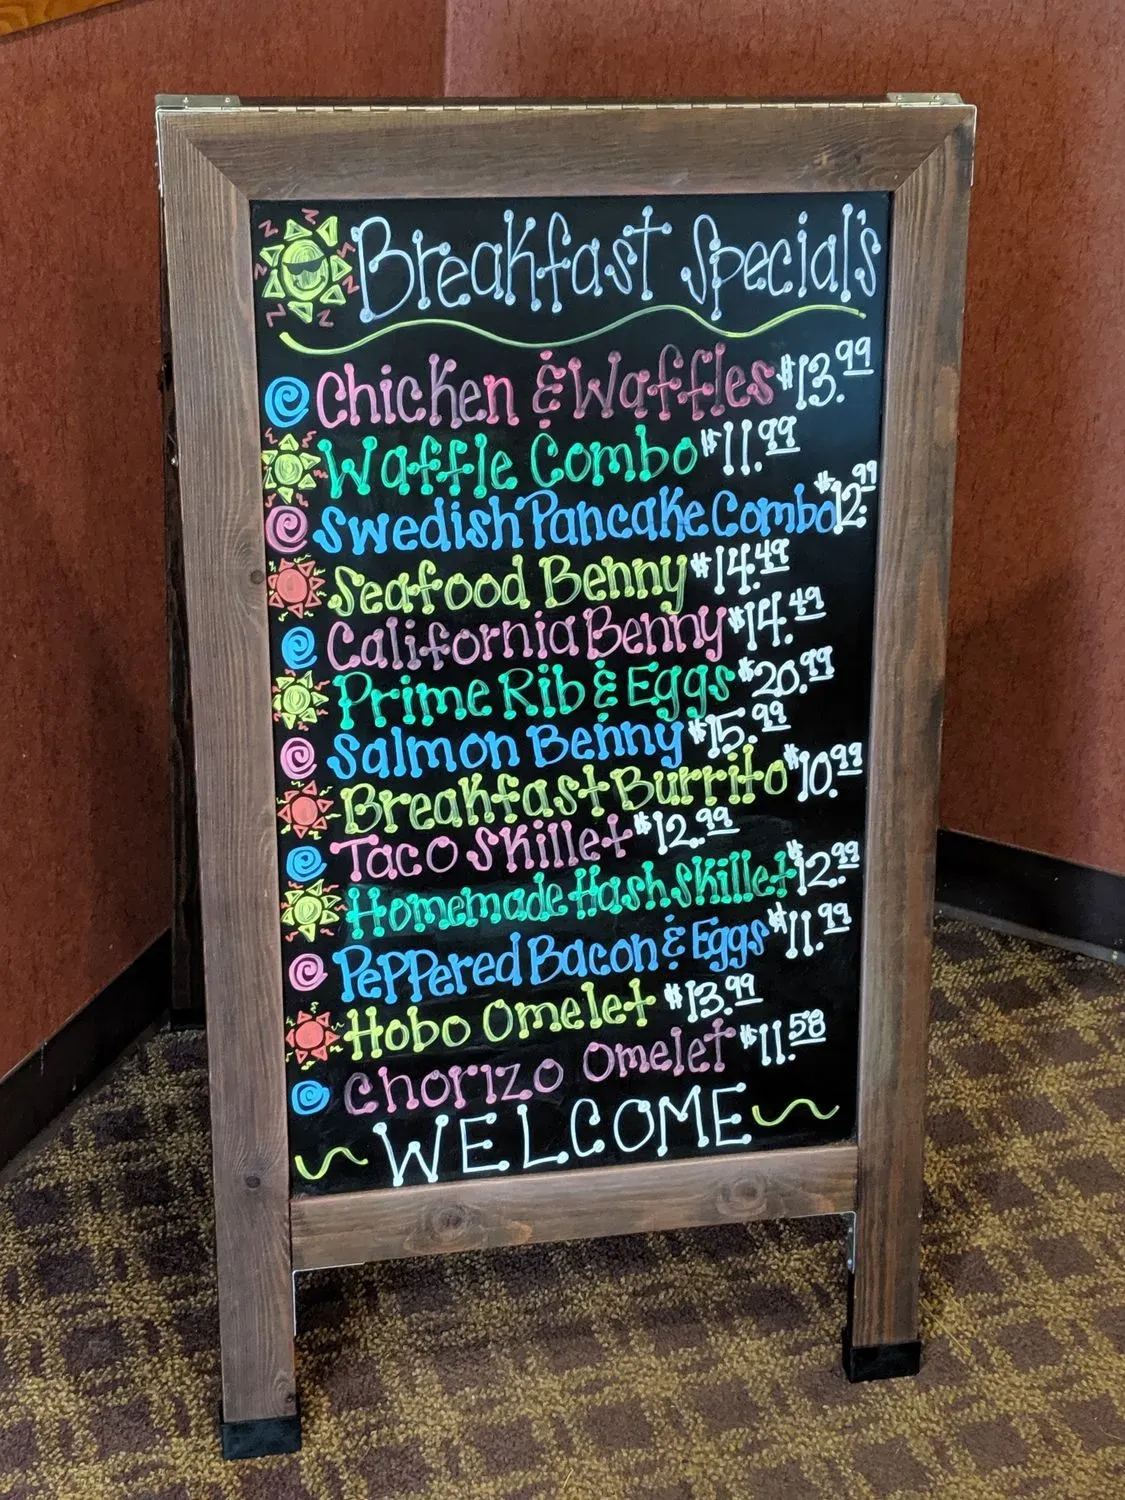 Breakfast Special's
Chicken & Waffles $13.99
Waffle Combo $11.99
Swedish Pancake Combo $12.99
Seafood Benny $14.49
California Benny $14.49
Prime Rib & Eggs $20.99
Salmon Benny $15.99
Breakfast Burrito $10.99
Taco Skillet $12.99
Homemade Hash Skillet $12.99
Peppered Bacon & Eggs $11.99
Hobo Omelet $13.99
Chorizo Omelet $11.58
WELCOME